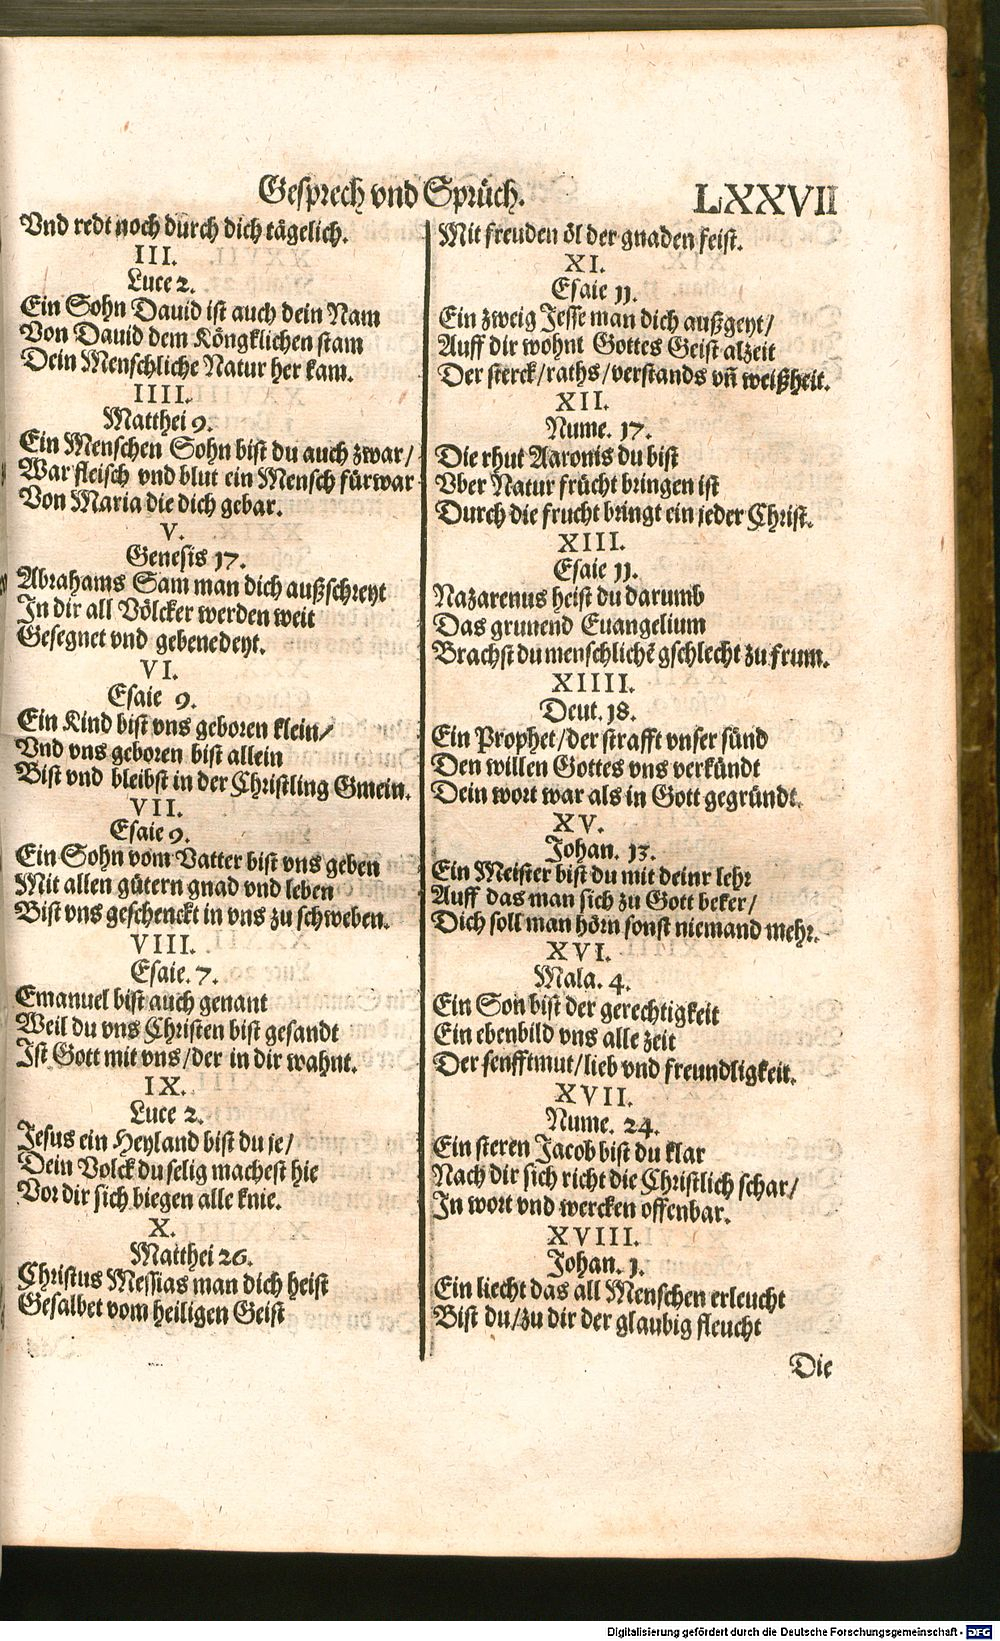 Gesprech vnd Sprüch. LXXVII
Vnd redt noch durch dich tägelich.
III.
Luce 2.
Ein Sohn Dauid ist auch dein Nam
Von Dauid dem Köngklichen stam
Dein Menschliche Natur her kam.
IIII.
Matthei 9.
Ein Menschen Sohn bist du auch zwar/
War fleisch vnd blut ein Mensch fürwar
Von Maria die dich gebar.
V.
Genesis 17.
Abrahams Sam man dich außschreyt
In dir all Völcker werden weit
Gesegnet vnd gebenedeyt.
VI.
Esaie 9.
Ein Kind bist vns geboren klein/
Vnd vns geboren bist allein
Bist vnd bleibst in der Christling Gmein.
VII.
Esaie 9.
Ein Sohn vom Vatter bist vns geben
Mit allen gütern gnad vnd leben
Bist vns geschenckt in vns zu schweben.
VIII.
Esaie. 7.
Emanuel bist auch genant
Weil du vns Christen bist gesandt
Ist Gott mit vns/der in dir wahnt.
IX.
Luce 2.
Jesus ein Heyland bist du ie/
Dein Volck du selig machest hie
Vor dir sich biegen alle knie.
X.
Matthei 26.
Christus Messias man dich heist
Gesalbet vom heiligen Geist
Mit freuden öl der gnaden feist.
XI.
Esaie 11.
Ein zweig Jesse man dich außgeyt/
Auff dir wohnt Gottes Geist alzeit
Der sterck/raths/verstands vñ weißheit.
XII.
Nume. 17.
Die rhut Aaronis du bist
Vber Natur frücht bringen ist
Durch die frucht bringt ein jeder Christ.
XIII.
Esaie 11.
Nazarenus heist du darumb
Das grunend Euangelium
Brachst du menschlichē gschlecht zu frum.
XIIII.
Deut. 18.
Ein Prophet/der strafft vnser sünd
Den willen Gottes vns verkündt
Dein wort war als in Gott gegründt.
XV.
Johan. 13.
Ein Meister bist du mit deinr lehr
Auff das man sich zu Gott beker/
Dich soll man hörn sonst niemand mehr.
XVI.
Mala. 4.
Ein Son bist der gerechtigkeit
Ein ebenbild vns alle zeit
Der senfftmut/lieb vnd freundligkeit.
XVII.
Nume. 24.
Ein steren Jacob bist du klar
Nach dir sich richt die Christlich schar/
In wort vnd wercken offenbar.
XVIII.
Johan. 1.
Ein liecht das all Menschen erleucht
Bist du/zu dir der glaubig fleucht
Die
Digitalisierung gefördert durch die Deutsche Forschungsgemeinschaft - DFG